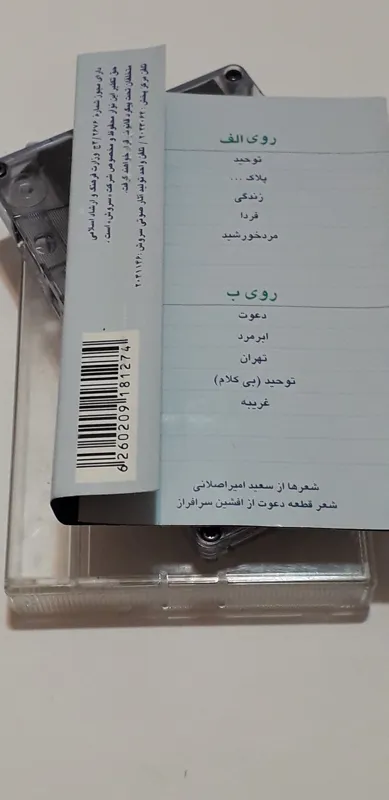 روی الف
توحید
پلاک ...
زندگی
فردا
مردخورشید
روی ب
دعوت
ابرمرد
تهران
توحید (بی کلام)
غریبه
شعرها از سعید امیراصلانی
شعر قطعه دعوت از افشین سرافراز
دارای مجوز شماره ۲۶۷۶/ج۲ وزارت فرهنگ و ارشاد اسلامی
حق تکثیر این نوار محفوظ و مخصوص شرکت «سروش» است.
متخلفان تحت پیگرد قانونی قرار خواهند گرفت.
تلفن مرکز پخش: ۲۰۳۳۰۶۲ / تلفن واحد تولید آثار صوتی سروش: ۲۰۳۱۱۳۶
6260209181274